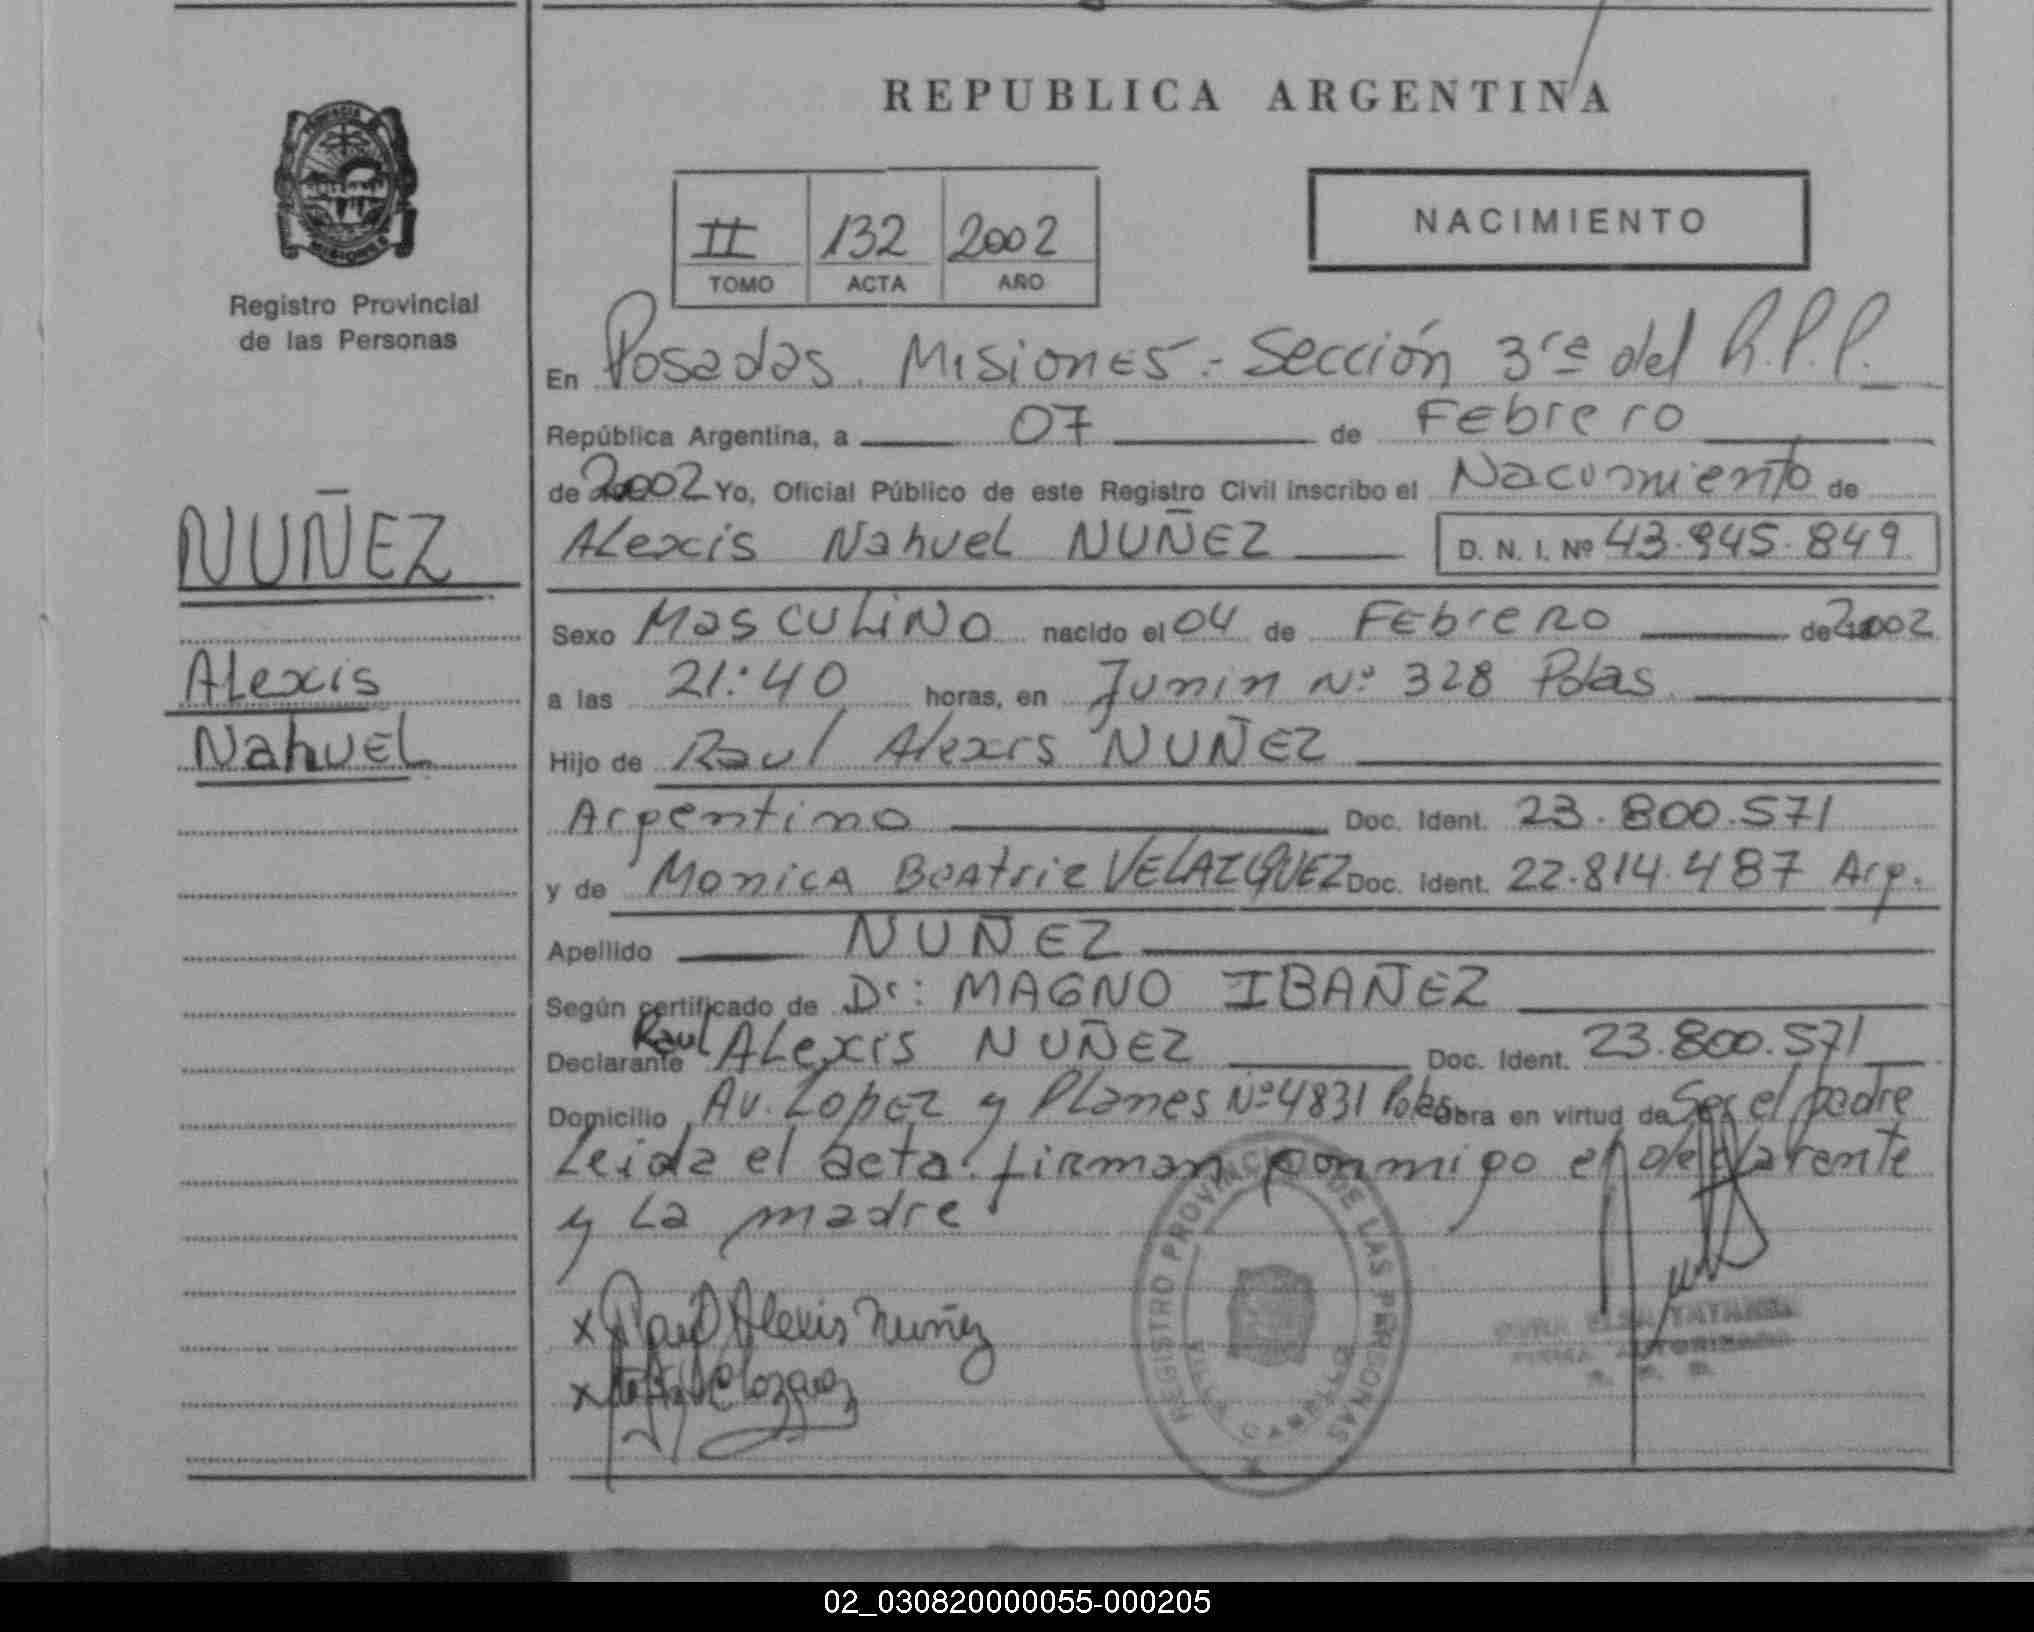 REPUBLICA ARGENTINA
PROVINCIA
MISIONES
Registro Provincial
de las Personas
II 132 2002
TOMO ACTA AÑO
NACIMIENTO
En Posadas. Misiones.- Sección 3ra del R.P.P.
República Argentina, a 07 de Febrero
de 2002 Yo, Oficial Público de este Registro Civil inscribo el Nacimiento de
NUÑEZ
Alexis Nahuel NUÑEZ D. N. I. Nº 43.945.849
Sexo Masculino nacido el 04 de Febrero de 2002
Alexis
a las 21:40 horas, en Junin Nº 328 Pdas.
Nahuel
Hijo de Raul Alexis NUÑEZ
Argentino Doc. Ident. 23.800.571
y de Monica Beatriz VELAZQUEZ Doc. Ident. 22.814.487 Arg.
Apellido NUÑEZ
Según certificado de Dr: MAGNO IBAÑEZ
Declarante Raul Alexis NUÑEZ Doc. Ident. 23.800.571
Domicilio Av. Lopez y Planes Nº 4831 Pdas Obra en virtud de Ser el padre
Leida el acta. firman conmigo el declarante
y La madre
x Raul Alexis Nuñez
x Velazquez
REGISTRO PROVINCIAL DE LAS PERSONAS
FIRMA AUTORIZADA
02_030820000055-000205